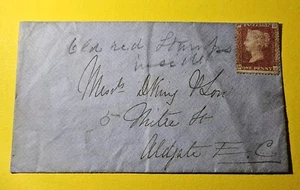 Old red Stamps
inside
Messrs D King & Son
5 Mitre St
Aldgate E.C
POSTAGE
ONE PENNY